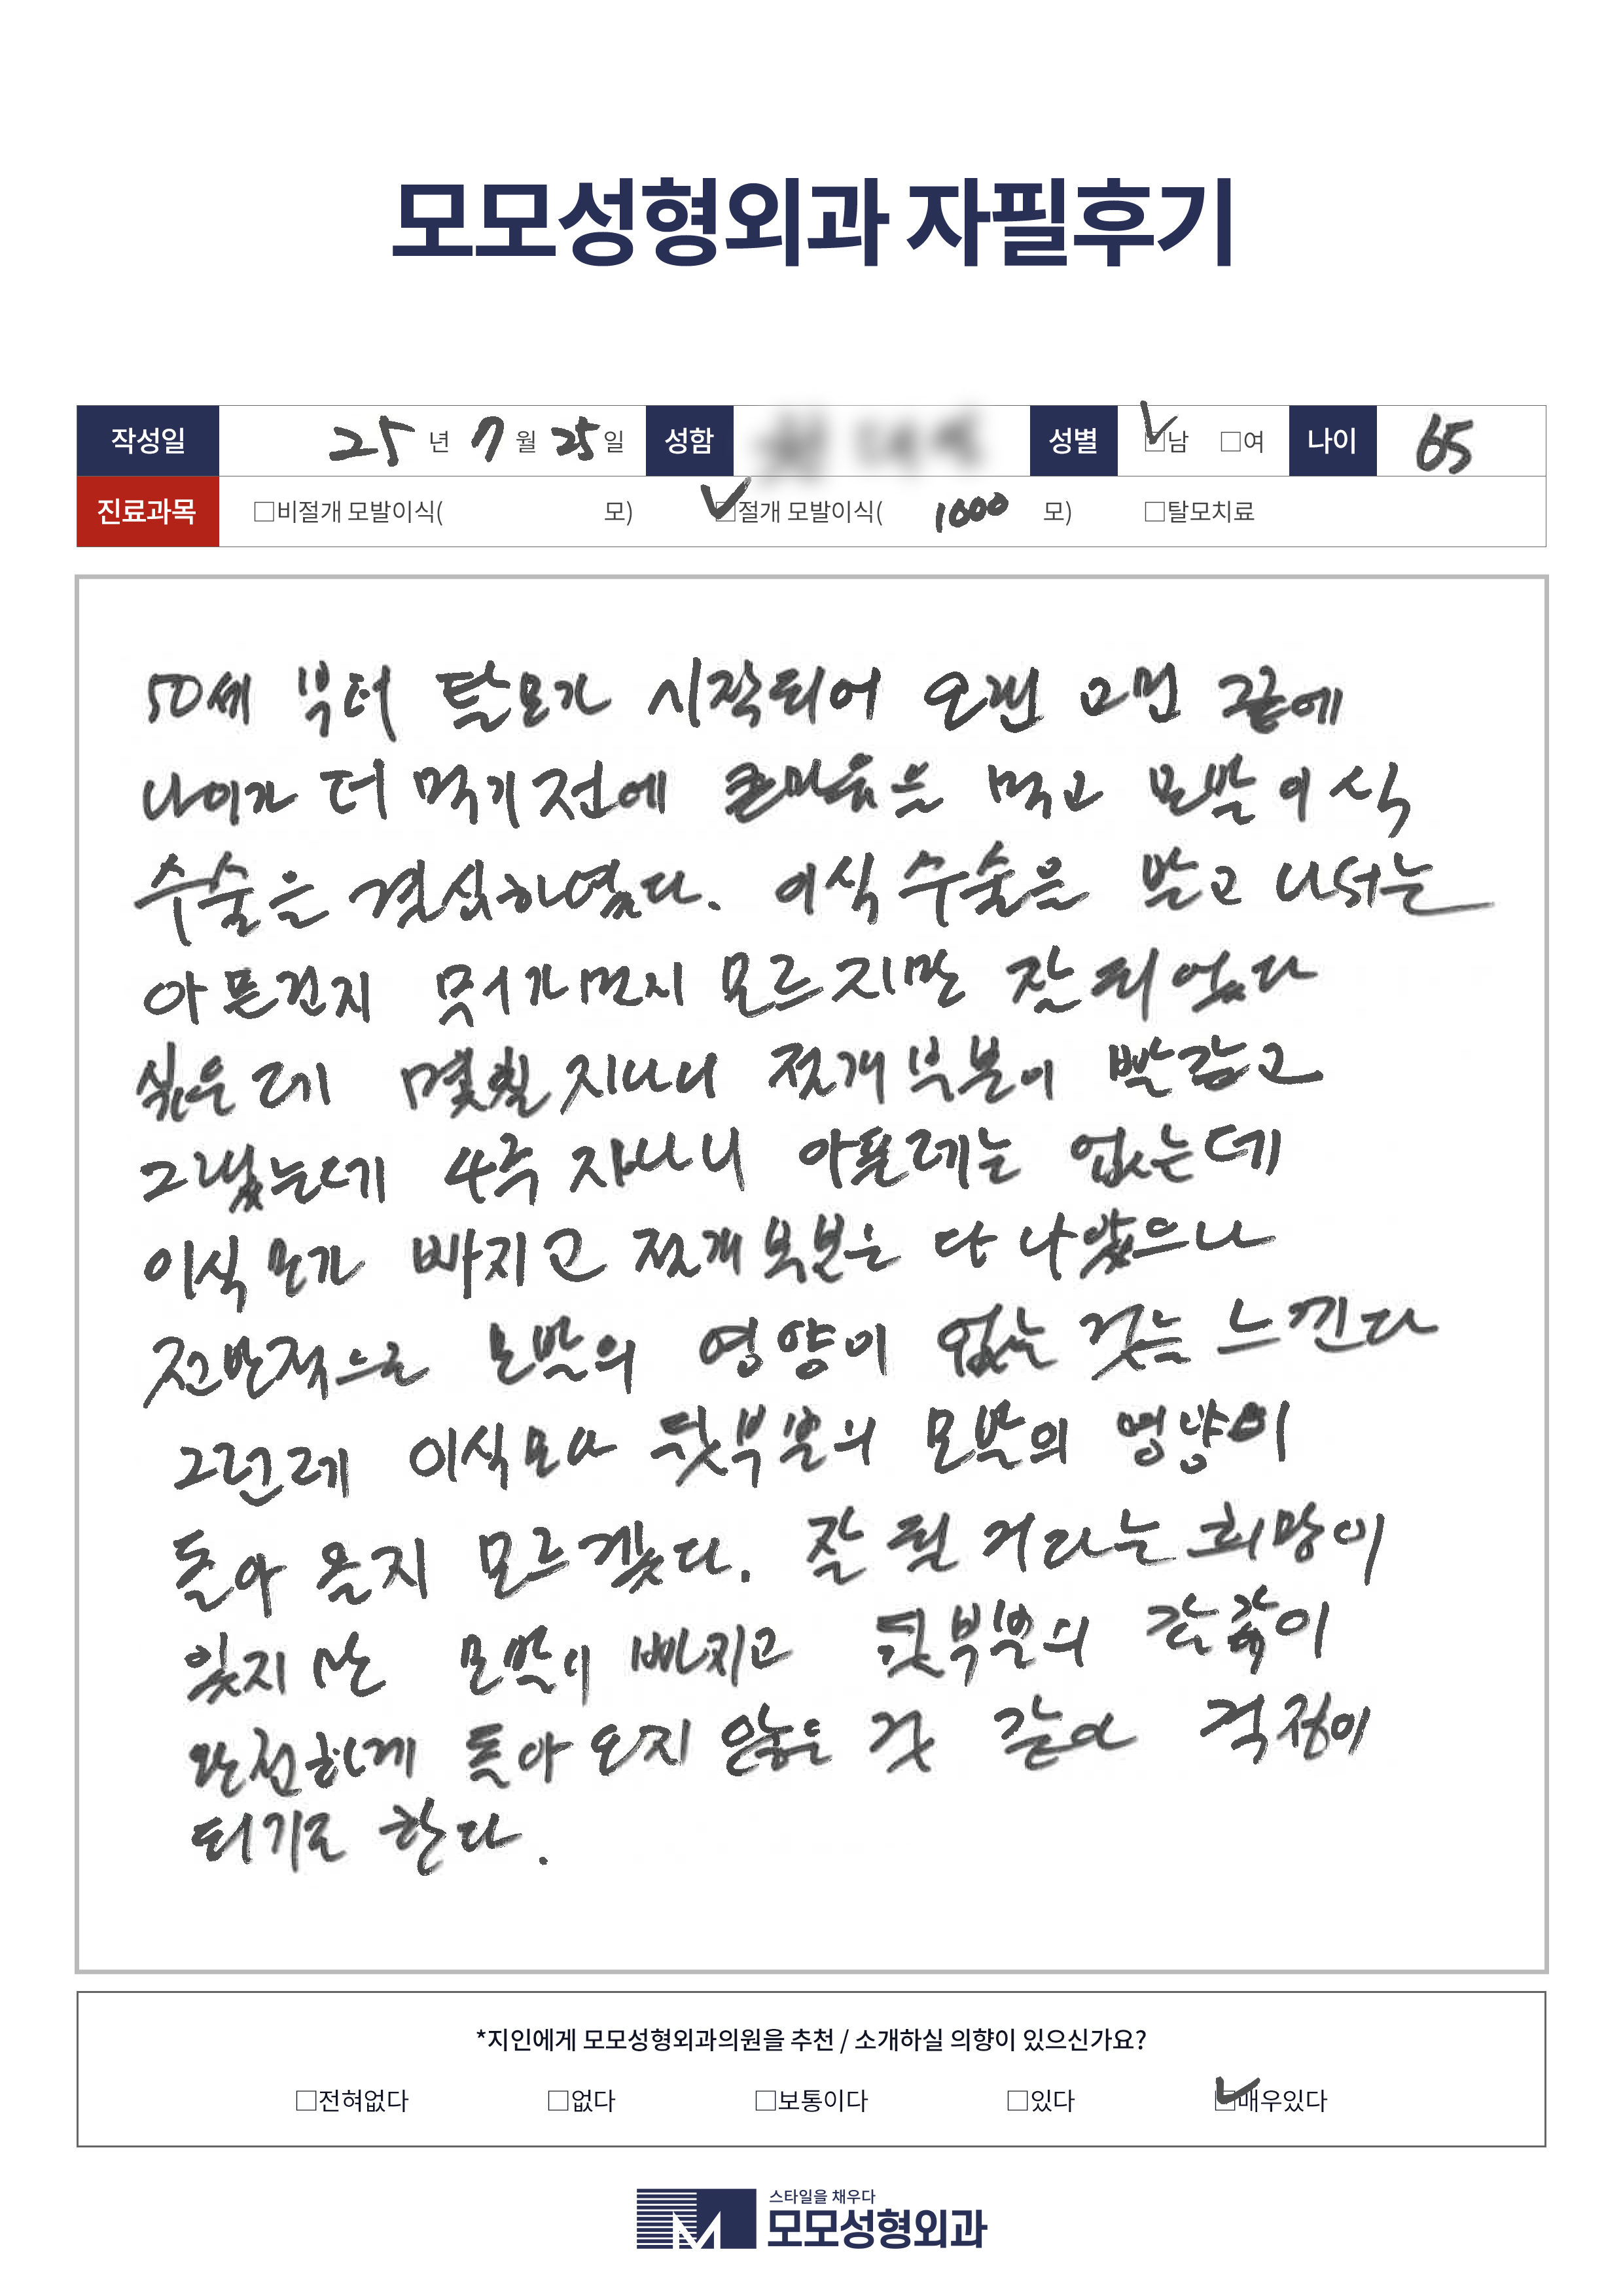 모모성형외과 자필후기
작성일 25 년 7 월 25 일 성함 성별 ☑남 □여 나이 65
진료과목 □비절개 모발이식( 모) ☑절개 모발이식( 1000 모) □탈모치료
50세 부터 탈모가 시작되어 오랜 고민 끝에
나이가 더 먹기전에 큰마음을 먹고 모발이식
수술을 결심하였다. 이식수술을 받고 나서는
아픈건지 뭐가 먼지 모르지만 잘 되었다
싶은데 몇칠 지나니 절개 부분이 빨갛고
그랬는데 4주 지나니 아픈데는 없는데
이식모가 빠지고 절개 부분은 다 나았으나
전반적으로 모발의 영양이 없는 것을 느낀다
그런데 이식모와 뒷부분의 모발의 영양이
돌아 올지 모르겠다. 잘 될 거라는 희망이
있지만 모발이 빠지고 뒷부분의 감각이
완전하게 돌아 오지 않은 것 같아 걱정이
되기도 한다.
*지인에게 모모성형외과의원을 추천 / 소개하실 의향이 있으신가요?
□전혀없다 □없다 □보통이다 □있다 ☑매우있다
스타일을 채우다
모모성형외과